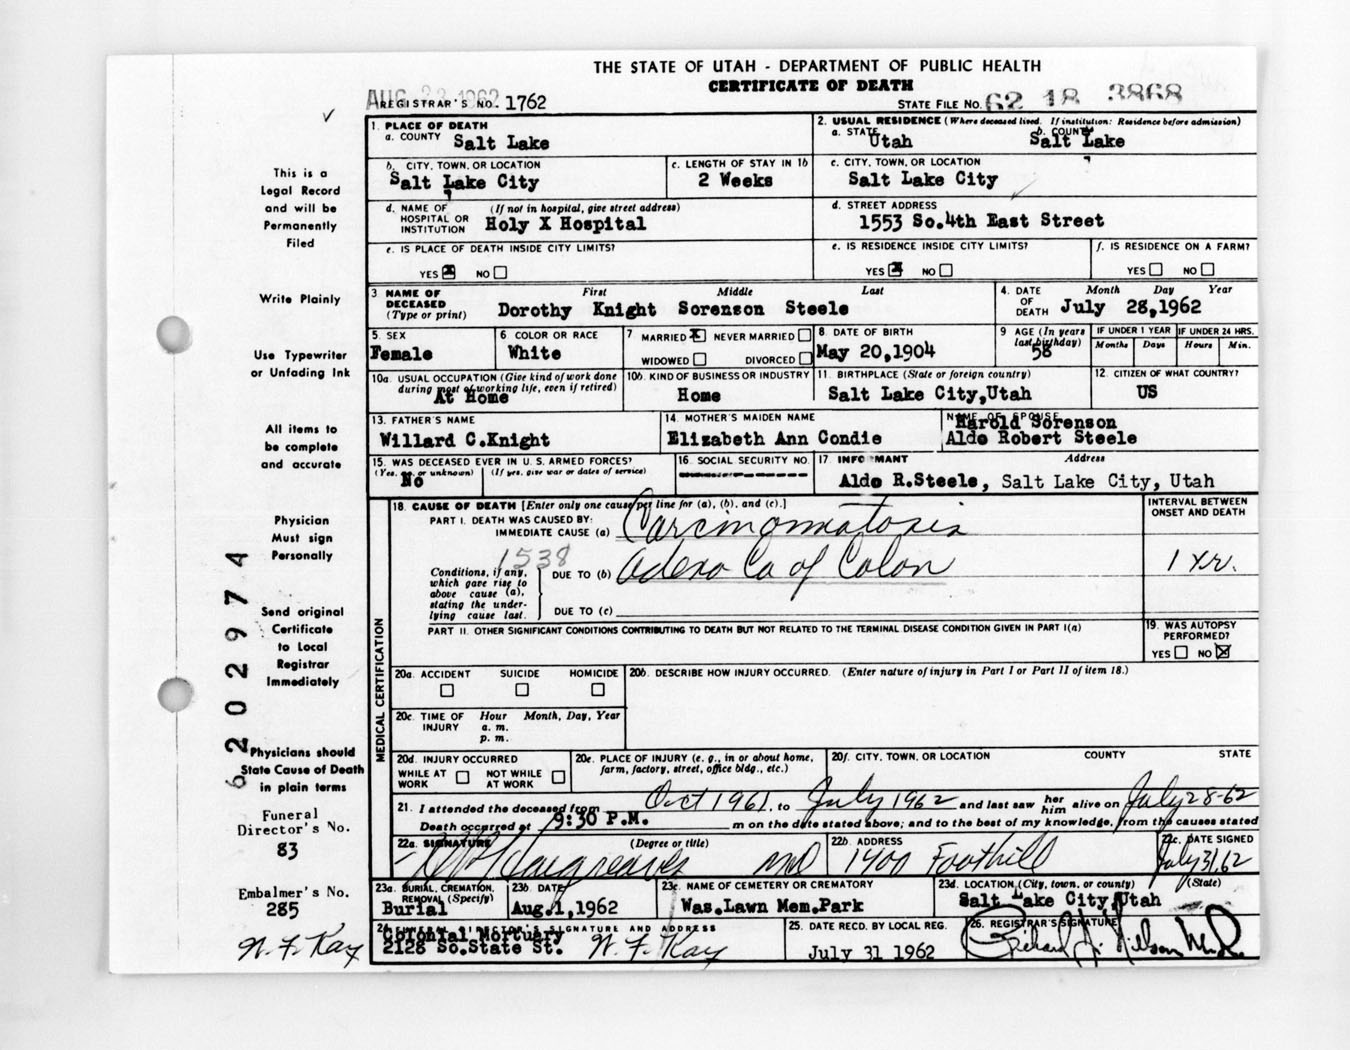 THE STATE OF UTAH - DEPARTMENT OF PUBLIC HEALTH
CERTIFICATE OF DEATH
AUG 23 1962
REGISTRAR'S NO. 1762
STATE FILE NO. 62 18 3868
This is a
Legal Record
and will be
Permanently
Filed
Write Plainly
Use Typewriter
or Unfading Ink
All items to
be complete
and accurate
Physician
Must sign
Personally
Send original
Certificate
to Local
Registrar
Immediately
Physicians should
State Cause of Death
in plain terms
6202974
Funeral
Director's No.
83
Embalmer's No.
285
W. F. Kay
1. PLACE OF DEATH
a. COUNTY Salt Lake
2. USUAL RESIDENCE (Where deceased lived. If institution: Residence before admission)
a. STATE Utah b. COUNTY Salt Lake
b. CITY, TOWN, OR LOCATION
Salt Lake City
c. LENGTH OF STAY IN 1b
2 Weeks
c. CITY, TOWN, OR LOCATION
Salt Lake City
d. NAME OF HOSPITAL OR INSTITUTION (If not in hospital, give street address)
Holy X Hospital
d. STREET ADDRESS
1553 So.4th East Street
e. IS PLACE OF DEATH INSIDE CITY LIMITS?
YES X NO
e. IS RESIDENCE INSIDE CITY LIMITS?
YES X NO
f. IS RESIDENCE ON A FARM?
YES NO
3 NAME OF DECEASED (Type or print) First Middle Last
Dorothy Knight Sorenson Steele
4. DATE OF DEATH Month Day Year
July 28,1962
5. SEX
Female
6 COLOR OR RACE
White
7 MARRIED X NEVER MARRIED
WIDOWED DIVORCED
8 DATE OF BIRTH
May 20,1904
9 AGE (In years last birthday)
58
IF UNDER 1 YEAR
Months Days
IF UNDER 24 HRS.
Hours Min.
10a. USUAL OCCUPATION (Give kind of work done during most of working life, even if retired)
At Home
10b. KIND OF BUSINESS OR INDUSTRY
Home
11. BIRTHPLACE (State or foreign country)
Salt Lake City,Utah
12. CITIZEN OF WHAT COUNTRY?
US
13. FATHER'S NAME
Willard C.Knight
14. MOTHER'S MAIDEN NAME
Elizabeth Ann Condie
NAME OF SPOUSE
Harold Sorenson
Aldo Robert Steele
15. WAS DECEASED EVER IN U. S. ARMED FORCES?
(Yes, no, or unknown) (If yes, give war or dates of service)
No
16. SOCIAL SECURITY NO.
17 INFORMANT Address
Aldo R.Steele, Salt Lake City, Utah
MEDICAL CERTIFICATION
18. CAUSE OF DEATH [Enter only one cause per line for (a), (b), and (c).]
PART I. DEATH WAS CAUSED BY:
IMMEDIATE CAUSE (a) Carcinomatosis
INTERVAL BETWEEN ONSET AND DEATH
1538
Conditions, if any, which gave rise to above cause (a), stating the underlying cause last.
DUE TO (b) Adeno Ca of Colon 1 yr.
DUE TO (c)
PART II. OTHER SIGNIFICANT CONDITIONS CONTRIBUTING TO DEATH BUT NOT RELATED TO THE TERMINAL DISEASE CONDITION GIVEN IN PART I(a)
19. WAS AUTOPSY PERFORMED?
YES NO X
20a. ACCIDENT SUICIDE HOMICIDE
20b. DESCRIBE HOW INJURY OCCURRED. (Enter nature of injury in Part I or Part II of item 18.)
20c. TIME OF INJURY Hour Month, Day, Year
a. m.
p. m.
20d. INJURY OCCURRED
WHILE AT WORK NOT WHILE AT WORK
20e. PLACE OF INJURY (e. g., in or about home, farm, factory, street, office bldg., etc.)
20f. CITY, TOWN, OR LOCATION COUNTY STATE
21. I attended the deceased from Oct 1961, to July 1962 and last saw her him alive on July 28-62
Death occurred at 9:30 P.M. m on the date stated above; and to the best of my knowledge, from the causes stated
22a. SIGNATURE (Degree or title)
Hargreaves MD
22b. ADDRESS
1400 Foothill
22c. DATE SIGNED
July 31, 62
23a. BURIAL, CREMATION, REMOVAL (Specify)
Burial
23b. DATE
Aug.1,1962
23c. NAME OF CEMETERY OR CREMATORY
Was.Lawn Mem.Park
23d. LOCATION (City, town, or county) (State)
Salt Lake City,Utah
24 FUNERAL DIRECTOR'S SIGNATURE AND ADDRESS
Colonial Mortuary
2128 So.State St. W. F. Kay
25. DATE RECD. BY LOCAL REG.
July 31 1962
26. REGISTRAR'S SIGNATURE